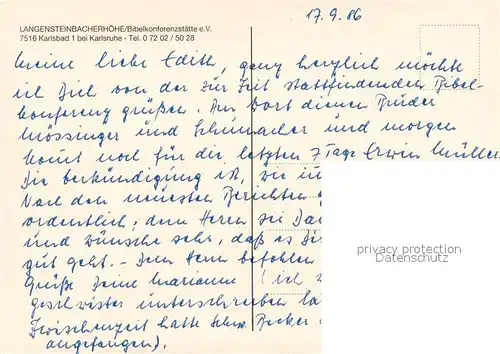 17.9.86
LANGENSTEINBACHERHÖHE/Bibelkonferenzstätte e.V.
7516 Karlsbad 1 bei Karlsruhe - Tel. 0 72 02 / 50 28
Meine liebe Edith, ganz herzlich möchte
ich Dich von der zur Zeit stattfindenden Bibel-
konferenz grüßen. Am Wort dienen Brüder
Mössinger und Schumacher und morgen
kommt noch für die letzten 7 Tage Erwin Müller
Die Verkündigung ist, wie im
Nach den neuesten Berichten
ordentlich; dem Herrn sei Da
und wünsche sehr, daß es Dir
gut geht. - Dem Herrn befohlen
Grüße Deine Marianne (ich
geschwister unterschreiben la
Zwischenzeit hatte Schw. Becker
angefangen).
privacy protection
AnsichtskartenDatenbank.de